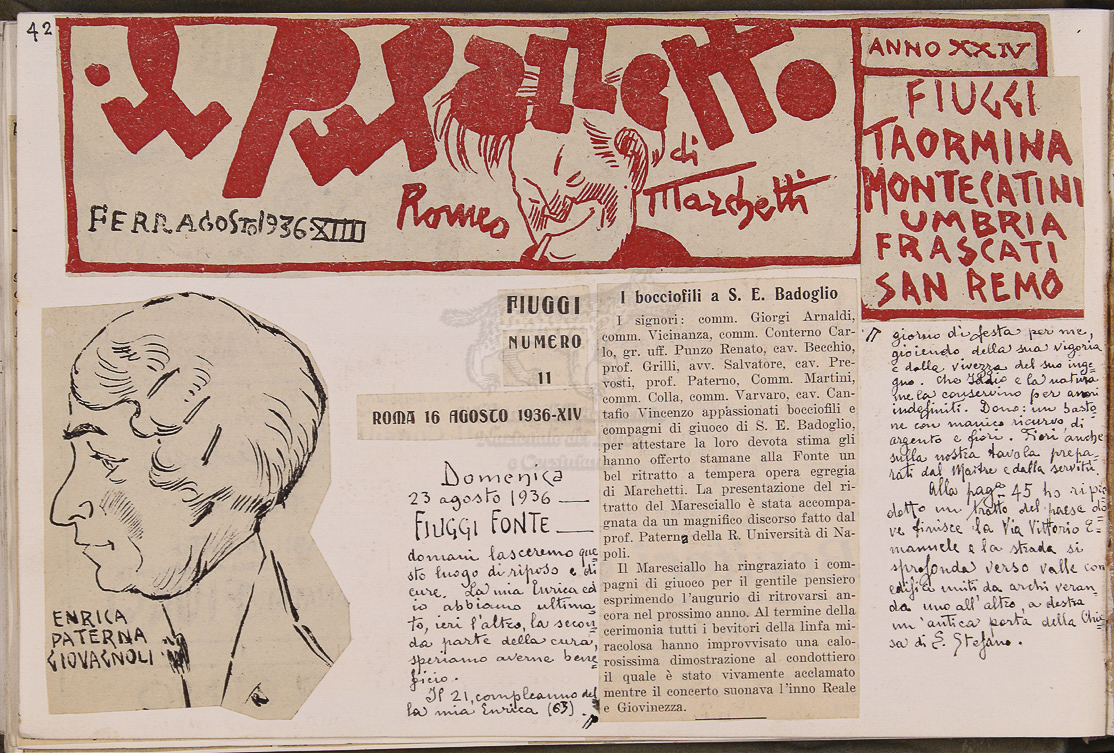 42
il Pupazzetto
di
Romeo Marchetti
FERRAGOSTO 1936-XIIII
ANNO XXIV
FIUGGI
TAORMINA
MONTECATINI
UMBRIA
FRASCATI
SAN REMO
ENRICA
PATERNA
GIOVAGNOLI
FIUGGI
NUMERO
11
ROMA 16 AGOSTO 1936-XIV
Domenica
23 agosto 1936 —
FIUGGI FONTE —
domani lasceremo que
sto luogo di riposo e di
cure. La mia Enrica ed
io abbiamo ultima=
to, ieri l'altro, la secon=
da parte della cura,
speriamo averne bene=
ficio.
Il 21, compleanno del
la mia Enrica (63).
I bocciofili a S. E. Badoglio
I signori: comm. Giorgi Arnaldi,
comm. Vicinanza, comm. Conterno Car-
lo, gr. uff. Punzo Renato, cav. Becchio,
prof. Grilli, avv. Salvatore, cav. Pre-
vosti, prof. Paterno, Comm. Martini,
comm. Colla, comm. Varvaro, cav. Can-
tafio Vincenzo appassionati bocciofili e
compagni di giuoco di S. E. Badoglio,
per attestare la loro devota stima gli
hanno offerto stamane alla Fonte un
bel ritratto a tempera opera egregia
di Marchetti. La presentazione del ri-
tratto del Maresciallo è stata accompa-
gnata da un magnifico discorso fatto dal
prof. Paterna della R. Università di Na-
poli.
Il Maresciallo ha ringraziato i com-
pagni di giuoco per il gentile pensiero
esprimendo l'augurio di ritrovarsi an-
cora nel prossimo anno. Al termine della
cerimonia tutti i bevitori della linfa mi-
racolosa hanno improvvisato una calo-
rosissima dimostrazione al condottiero
il quale è stato vivamente acclamato
mentre il concerto suonava l'inno Reale
e Giovinezza.
giorno di festa per me,
gioiendo della sua vigoria
e dalla vivezza del suo inge=
gno. Che Iddio e la natura
me la conservino per anni
indefiniti. Dono: un basto
ne con manico ricurvo di
argento e fiori. Fiori anche
sulla nostra tavola prepa=
rati dal Maitre e dalla servitù.
Alla paga 45 ho ripro
dotto un tratto del paese do
ve finisce la Via Vittorio E=
manuele e la strada si
sprofonda verso valle con
edifici uniti da archi veran=
da uno all'altro, a destra
un'antica porta della Chie
sa di S. Stefano.